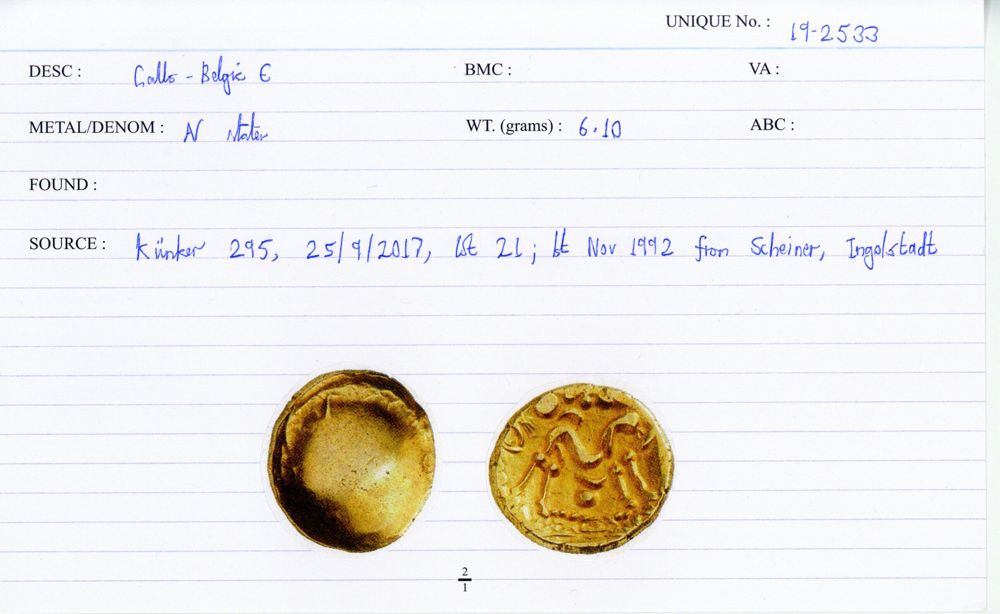 UNIQUE No. : 19-2533
DESC : Gallo-Belgic E BMC : VA :
METAL/DENOM : N stater WT. (grams) : 6.10 ABC :
FOUND :
SOURCE : Künker 295, 25/9/2017, lot 21; bt Nov 1992 from Scheiner, Ingolstadt
2
1